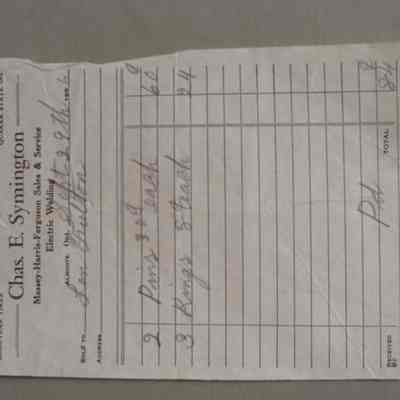 Chas. E. Symington
Massey-Harris-Ferguson Sales & Service
Electric Welding
ALMONTE, Ont. Sept 29th 196
SOLD TO Len
ADDRESS
2 Pins 30¢ each 60
3 Rings 8¢ each 24
Pd TOTAL 84
RECEIVED
BY